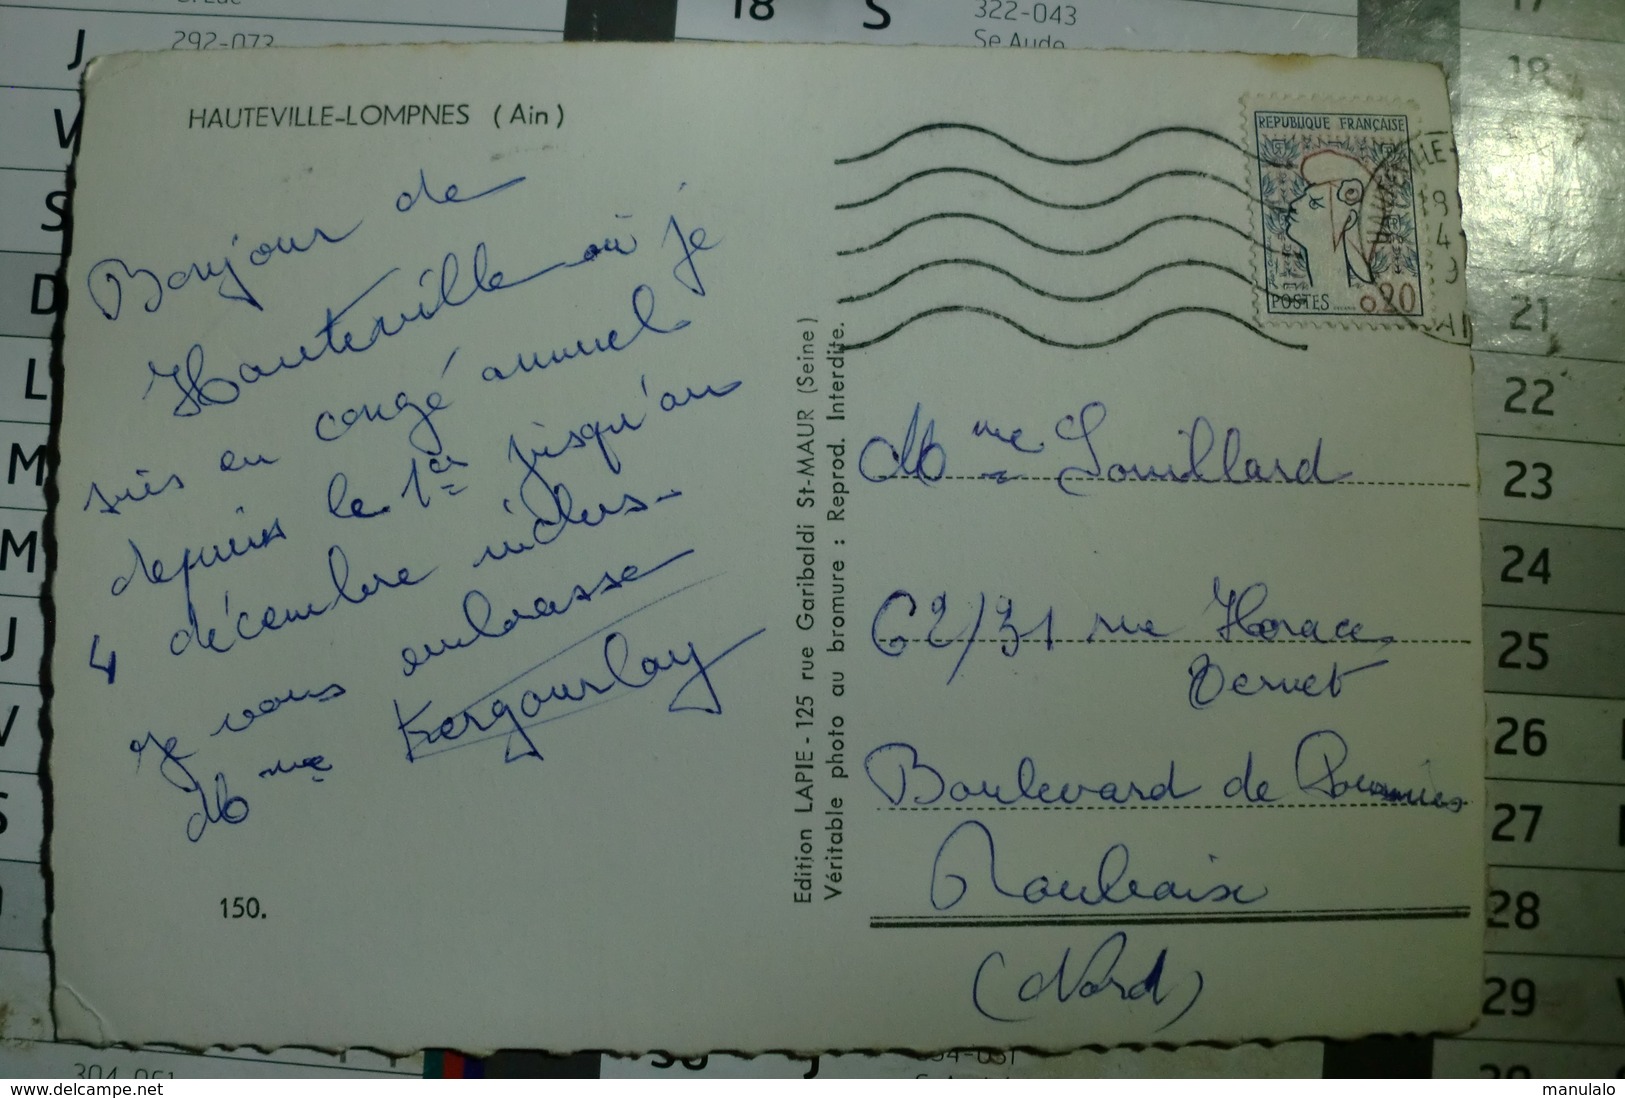 18 S
322-043
Se Aude
17
J
292-073
18
HAUTEVILLE-LOMPNES (Ain)
REPUBLIQUE FRANÇAISE
POSTES 0,20
Bonjour de
Hauteville où je
suis en congé annuel
depuis le 1er jusqu'au
4 décembre inclus-
je vous embrasse
Mme Kergourlay
150.
Edition LAPIE - 125 rue Garibaldi St-MAUR (Seine)
Véritable photo au bromure : Reprod. Interdite.
Mme Souillard
62/31 rue Horace
Vernet
Boulevard de
Roubaix
(Nord)
V
S
D
L
M
M
J
V
S
21
22
23
24
25
26
27
28
29
304-061
J
www.delcampe.net
manulalo